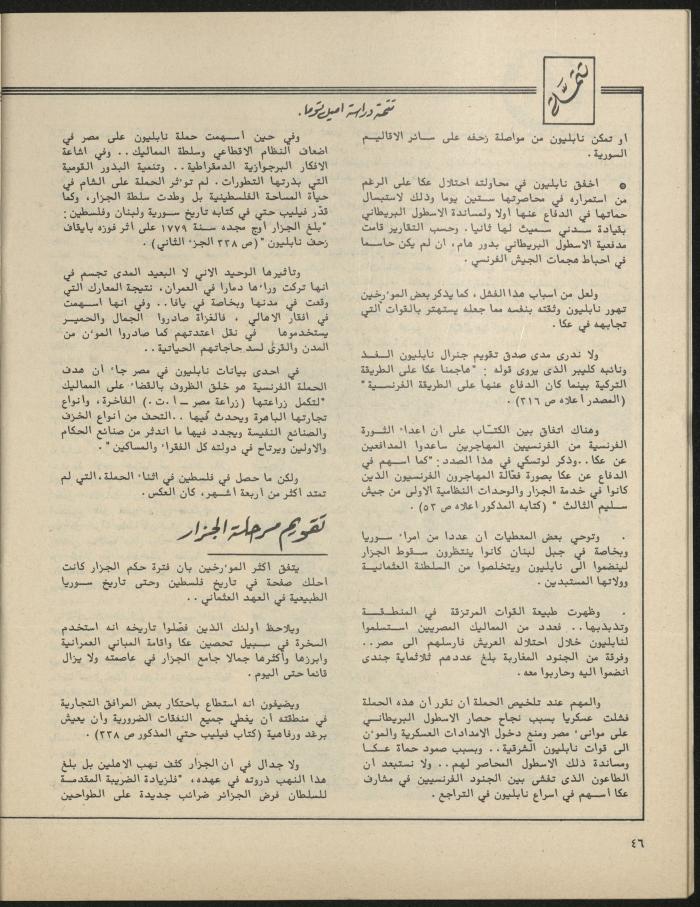 تتمة
تتمة دراسة اميل توما .
او تمكن نابليون من مواصلة زحفه على سائر الاقاليم
السورية .
● اخفق نابليون في محاولته احتلال عكا على الرغم
من استمراره في محاصرتها ستين يوما وذلك لاستبسال
حماتها في الدفاع عنها اولا ولمساندة الاسطول البريطاني
بقيادة سدني سميث لها ثانيا . وحسب التقارير قامت
مدفعية الاسطول البريطاني بدور هام ، ان لم يكن حاسما
في احباط هجمات الجيش الفرنسي .
ولعل من اسباب هذا الفشل ، كما يذكر بعض الموءرخين
تهور نابليون وثقته بنفسه مما جعله يستهتر بالقوات التي
تجابهه في عكا .
ولا ندرى مدى صدق تقويم جنرال نابليون الفذ
ونائبه كليبر الذى يروى قوله : "هاجمنا عكا على الطريقة
التركية بينما كان الدفاع عنها على الطريقة الفرنسية"
(المصدر اعلاه ص ٣١٦) .
وهناك اتفاق بين الكتّاب على ان اعداء الثورة
الفرنسية من الفرنسيين المهاجرين ساعدوا المدافعين
عن عكا .. وذكر لوتسكي في هذا الصدد : "كما اسهم في
الدفاع عن عكا بصورة فعّالة المهاجرون الفرنسيون الذين
كانوا في خدمة الجزار والوحدات النظامية الاولى من جيش
سليم الثالث " (كتابه المذكور اعلاه ص ٥٣) .
. وتوحي بعض المعطيات ان عددا من امراء سوريا
وبخاصة في جبل لبنان كانوا ينتظرون سقوط الجزار
لينضموا الى نابليون ويتخلصوا من السلطنة العثمانية
وولاتها المستبدين .
. وظهرت طبيعة القوات المرتزقة في المنطقة
وتذبذبها .. فعدد من المماليك المصريين استسلموا
لنابليون خلال احتلاله العريش فارسلهم الى مصر ..
وفرقة من الجنود المغاربة بلغ عددهم ثلاثماية جندى
انضموا اليه وحاربوا معه .
والمهم عند تلخيص الحملة ان نقرر ان هذه الحملة
فشلت عسكريا بسبب نجاح حصار الاسطول البريطاني
على موانىء مصر ومنع دخول الامدادات العسكرية والموءن
الى قوات نابليون الشرقية .. وبسبب صمود حماة عكا
ومساندة ذلك الاسطول المحاصر لهم .. ولا نستبعد ان
الطاعون الذى تفشى بين الجنود الفرنسيين في مشارف
عكا اسهم في اسراع نابليون في التراجع .
وفي حين اسهمت حملة نابليون على مصر في
اضعاف النظام الاقطاعي وسلطة المماليك .. وفي اشاعة
الافكار البرجوازية الدمقراطية .. وتنمية البذور القومية
التي بذرتها التطورات . لم توءثر الحملة على الشام في
حياة المساحة الفلسطينية بل وطدت سلطة الجزار ، وكما
قدّر فيليب حتي في كتابه تاريخ سورية ولبنان وفلسطين :
"بلغ الجزار اوج مجده سنة ١٧٧٩ على اثر فوزه بايقاف
زحف نابليون " (ص ٣٣٨ الجزء الثاني) .
وتأثيرها الوحيد الاني لا البعيد المدى تجسم في
انها تركت وراءها دمارا في العمران ، نتيجة المعارك التي
وقعت في مدنها وبخاصة في يافا .. وفي انها اسهمت
في افقار الاهالي ، فالغزاة صادروا الجمال والحمير
يستخدموها في نقل اعتدتهم كما صادروا الموءن من
المدن والقرى لسد حاجاتهم الحياتية ..
في احدى بيانات نابليون في مصر جاء ان هدف
الحملة الفرنسية هو خلق الظروف بالقضاء على المماليك
"لتكمل زراعتها (زراعة مصر ــ ا . ت .) الفاخرة ، وانواع
تجارتها الباهرة ويحدث فيها .. التحف من أنواع الخزف
والصنائع النفيسة ويجدد فيها ما اندثر من صنائع الحكام
والاولين ويرتاح في دولته كل الفقراء والمساكين " .
ولكن ما حصل في فلسطين في اثناء الحملة ، التي لم
تمتد اكثر من اربعة اشهر ، كان العكس .
تقويم مرحلة الجزار
يتفق اكثر الموءرخين بان فترة حكم الجزار كانت
احلك صفحة في تاريخ فلسطين وحتى تاريخ سوريا
الطبيعية في العهد العثماني ..
ويلاحظ اولئك الذين فصّلوا تاريخه انه استخدم
السخرة في سبيل تحصين عكا واقامة المباني العمرانية
وابرزها واكثرها جمالا جامع الجزار في عاصمته ولا يزال
قائما حتى اليوم .
ويضيفون انه استطاع باحتكار بعض المرافق التجارية
في منطقته ان يغطي جميع النفقات الضرورية وأن يعيش
برغد ورفاهية (كتاب فيليب حتي المذكور ص ٣٣٨) .
ولا جدال في ان الجزار كثف نهب الاهلين بل بلغ
هذا النهب ذروته في عهده ، "فلزيادة الضريبة المقدمة
للسلطان فرض الجزائر ضرائب جديدة على الطواحين
٤٦